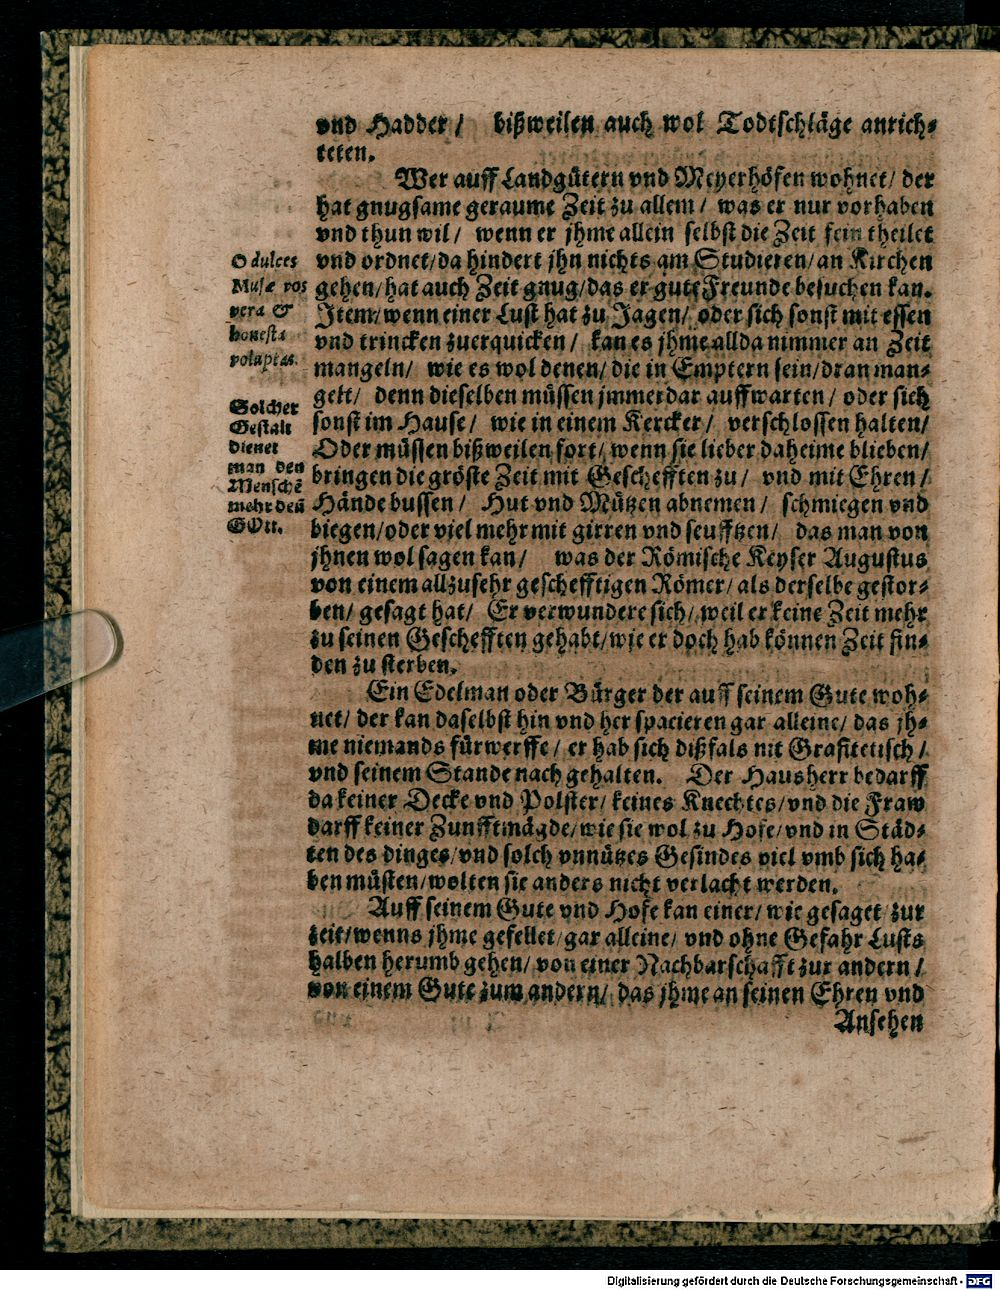 vnd Hadder / bißweilen auch wol Todtschläge anrich-
teten.
Wer auff Landgütern vnd Meyerhöfen wohnet / der
hat gnugsame geraume Zeit zu allem / was er nur vorhaben
vnd thun wil / wenn er jhme allein selbst die Zeit fein theilet
vnd ordnet / da hindert jhn nichts am Studieren / an Kirchen
gehen / hat auch Zeit gnug / das er gute Freunde besuchen kan.
Item / wenn einer Lust hat zu Jagen / oder sich sonst mit essen
vnd trincken zuerquicken / kan es jhme allda nimmer an Zeit
mangeln / wie es wol denen / die in Emptern sein / dran man-
gelt / denn dieselben müssen jmmerdar auffwarten / oder sich
sonst im Hause / wie in einem Kercker / verschlossen halten /
Oder müssen bißweilen fort / wenn sie lieber daheime blieben /
bringen die gröste Zeit mit Geschefften zu / vnd mit Ehren /
Hände bussen / Hut vnd Mützen abnemen / schmiegen vnd
biegen / oder viel mehr mit girren vnd seufftzen / das man von
jhnen wol sagen kan / was der Römische Keyser Augustus
von einem allzusehr gescheffttigen Römer / als derselbe gestor-
ben / gesagt hat / Er verwundere sich / weil er keine Zeit mehr
zu seinen Geschefften gehabt / wie er doch hab können Zeit fin-
den zu sterben.
O dulces
Musæ vos
vera &
honesta
voluptas.
Solcher
Gestalt
dienet
man den
Menschē
mehr deñ
GOtt.
Ein Edelman oder Bürger der auff seinem Gute woh-
net / der kan daselbst hin vnd her spacieren gar alleine / das jh-
me niemands fürwerffe / er hab sich dißfals nit Grafitetisch /
vnd seinem Stande nach gehalten. Der Hausherr bedarff
da keiner Decke vnd Polster / keines Knechtes / vnd die Fraw
darff keiner Zunfftmägde / wie sie wol zu Hofe / vnd in Städ-
ten des dinges / vnd solch vnnützes Gesindes viel vmb sich ha-
ben müsten / wolten sie anders nicht verlacht werden.
Auff seinem Gute vnd Hofe kan einer / wie gesaget zur
zeit / wenns jhme gefellet / gar alleine / vnd ohne Gefahr Lusts
halben herumb gehen / von einer Nachbarschafft zur andern /
von einem Gute zum andern / das jhme an seinen Ehren vnd
Ansehen
Digitalisierung gefördert durch die Deutsche Forschungsgemeinschaft - DFG